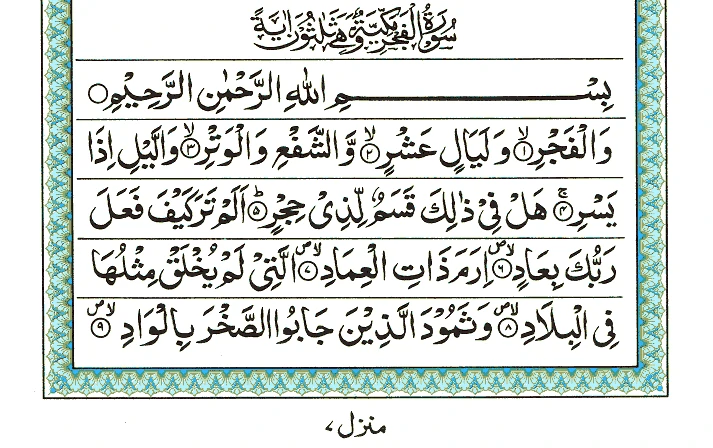 سُوْرَةُ الْفَجْرِ مَكِّيَّةٌ وَّهِيَ ثَلٰثُوْنَ اٰيَةً
بِسْمِ اللهِ الرَّحْمٰنِ الرَّحِيْمِ
وَالْفَجْرِ ۙ﴿۱﴾ وَلَيَالٍ عَشْرٍ ۙ﴿۲﴾ وَّالشَّفْعِ وَالْوَتْرِ ۙ﴿۳﴾ وَالَّيْلِ اِذَا
يَسْرِ ۚ﴿۴﴾ هَلْ فِيْ ذٰلِكَ قَسَمٌ لِّذِيْ حِجْرٍ ؕ﴿۵﴾ اَلَمْ تَرَ كَيْفَ فَعَلَ
رَبُّكَ بِعَادٍ ۪ۙ﴿۶﴾ اِرَمَ ذَاتِ الْعِمَادِ ۪ۙ﴿۷﴾ الَّتِيْ لَمْ يُخْلَقْ مِثْلُهَا
فِي الْبِلَادِ ۪ۙ﴿۸﴾ وَثَمُوْدَ الَّذِيْنَ جَابُوا الصَّخْرَ بِالْوَادِ ۪ۙ﴿۹﴾
منزل ۷